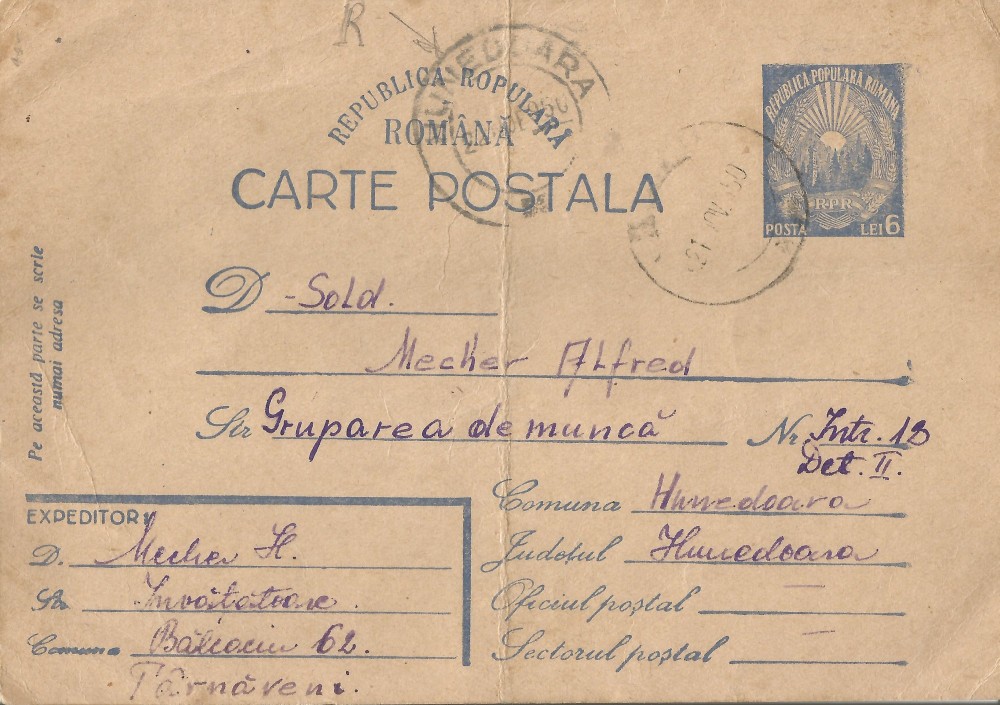 R
HUNEDOARA
REPUBLICA ROPULARĂ
ROMÂNĂ
CARTE POSTALA
REPUBLICA POPULARA ROMANA
RPR
POSTA LEI 6
21 NOV. 50
Pe această parte se scrie
numai adresa
D -Sold.
Mecher Alfred
Str Gruparea de muncă Nr Intr. 13
Det. II.
Comuna Hunedoara
Județul Hunedoara
Oficiul poștal —
Sectorul poștal —
EXPEDITOR:
D. Mecher H.
Str Învățătoare
Comuna Bălcaciu 62.
Târnăveni.